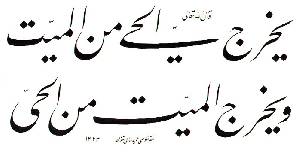 قال الله تعالى
يخرج الحي من الميت
ويخرج الميت من الحي